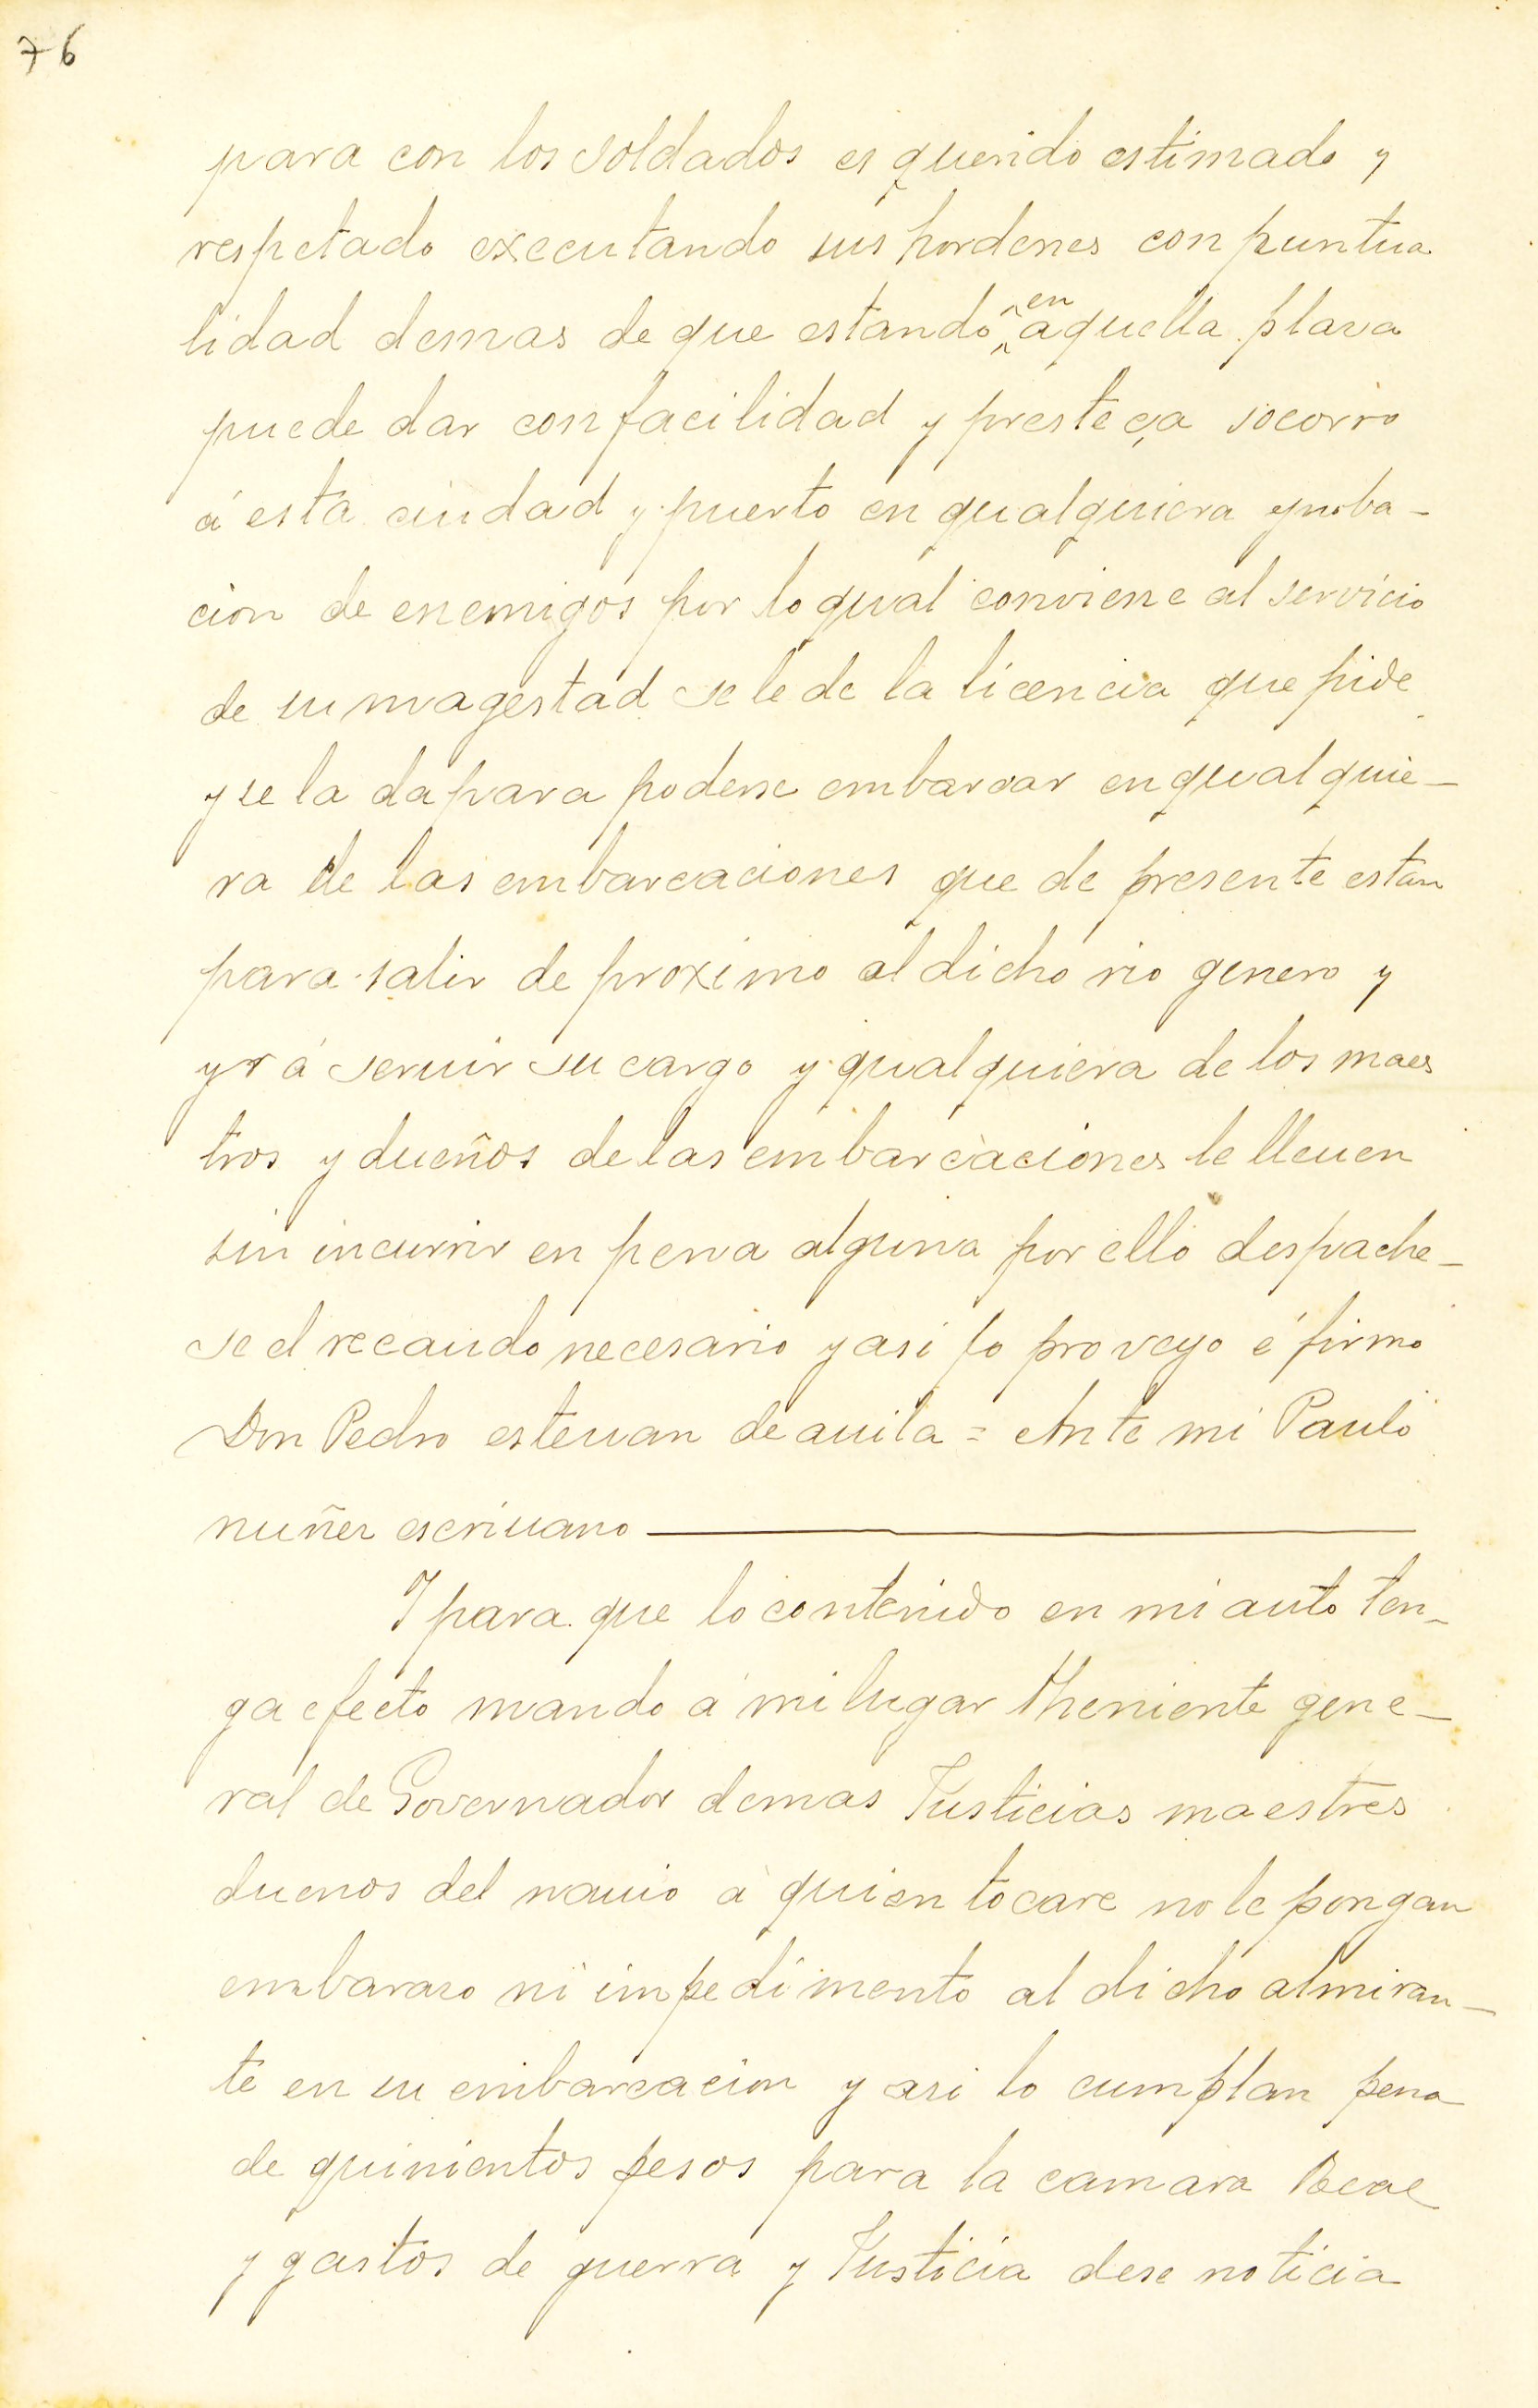 76
para con los soldados es querido estimado y
respetado executando sus hordenes con puntua
lidad demas de que estando en aquella plaza
puede dar con facilidad y presteça socorro
á esta ciudad y puerto en qualquiera ynba-
cion de enemigos por lo qual conviene al servicio
de su magestad se le de la licencia que pide
y se la da para poderse embarcar en qualquie-
ra de las embarcaciones que de presente estan
para salir de proximo al dicho rio genero y
yr á seruir su cargo y qualquiera de los maes
tros y dueños de las embarcaciones le lleuen
sin incurrir en pena alguna por ello despache-
se el recaudo necesario y asi lo proveyo é firmo
Don Pedro esteuan de auila = Ante mi Paulo
nuñez escriuano
Y para que lo contenido en mi auto ten-
ga efecto mando á mi lugar theniente gene-
ral de Governador demas Justicias maestres
duenos del nauio á quien tocare no le pongan
embarazo ni impedimento al dicho almiran-
te en su embarcacion y asi lo cumplan pena
de quinientos pesos para la camara Real
y gastos de guerra y Justicia dese noticia